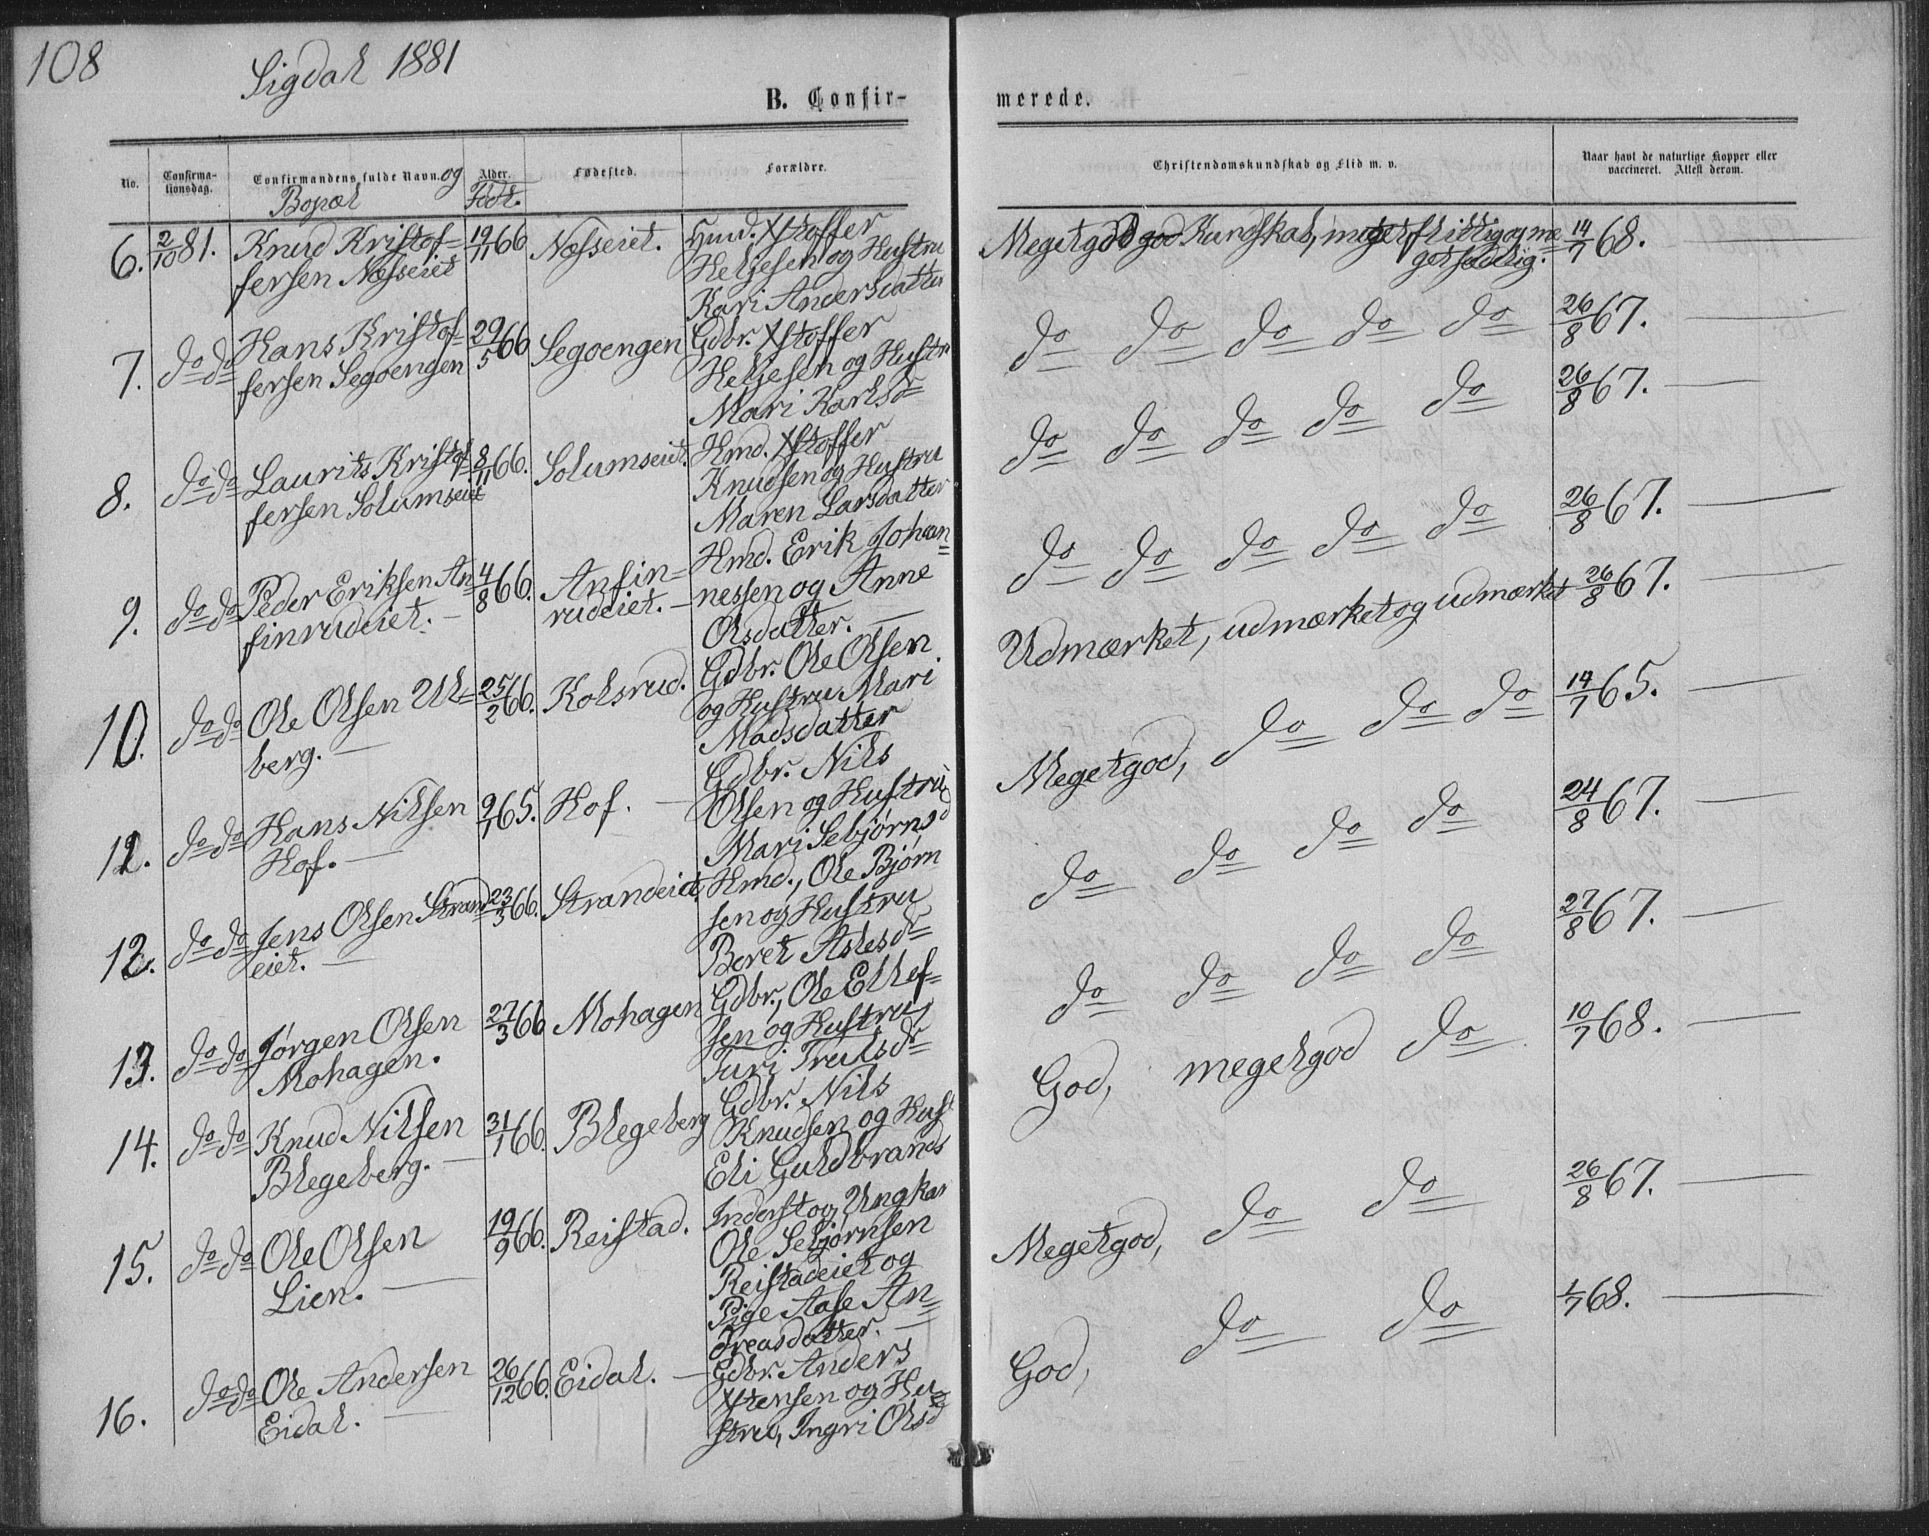 108
Sigdal 1881
B. Confir-
merede.
No.
Confirma-
tionsdag.
Confirmandens fulde Navn. og
Bopæl
Alder.
Født.
Fødested.
Forældre.
Christendomskundskab og Flid m. v.
Naar havt de naturlige Kopper eller
vaccineret. Attest derom.
6. 2/10 81. Knud Kristof- 19/11 66 Næsseiet. Hmd. Xstoffer
fersen Næsseiet Heljesen og Hustru
Kari Andersdatter
Megetgod Kundskab, meget flittig og me
get sædelig. 14/7 68.
7. do do Hans Kristof- 29/5 66 Segoengen Gdbr. Xstoffer
fersen Segoengen Heljesen og Hustru
Mari Karlsd
do do do do do 26/8 67.
8. do do Laurits Kristof- 8/11 66. Solumseiet. Hmd. Xstoffer
fersen Solumseiet Knudsen og Hustru
Maren Larsdatter
do do do do do 26/8 67.
9. do do Peder Eriksen An- 4/8 66. Anfin- Hmd. Erik Johan=
finrudeiet. rudeiet. nessen og Anne
Olsdatter.
do do do do do 26/8 67.
10. do do Ole Olsen Ul= 25/2 66. Kolsrud. Gdbr. Ole Olsen
berg. og Hustru Mari
Madsdatter
Udmærket, udmærket og udmærket 26/8 67.
11. do do Hans Nilsen 9/1 65. Hof. Gdbr. Nils
Hof. Olsen og Hustru
Mari Sebjørnsd
Megetgod, do do do 14/7 65.
12. do do Jens Olsen Strand 23/3 66. Strandeiet, Hmd., Ole Bjørn
eiet. sen og Hustru
Beret Aslesdr
do do do do 24/8 67.
13. do do Jørgen Olsen 27/3 66 Mohagen Gdbr., Ole Ellef=
Mohagen. sen og Hustru
Turi Trulsdr
do do do do 27/8 67.
14. do do Knud Nilsen 31/1 66 Blegeberg Gdbr. Nils
Blegeberg. Knudsen og Hust
Eli Guldbrands
God, megetgod do 10/7 68.
15. do do Ole Olsen 19/9 66. Reistad. Inderst og Ungkar
Lien. Ole Sebjørnsen
Reistadeiet og
Pige Aase An=
dreasdatter.
Megetgod, do do 26/8 67.
16. do do Ole Andersen 26/12 66. Eidal. Gdbr. Anders
Eidal. Xstensen og Hu
stru, Ingri Olsd
God, do do 1/7 68.